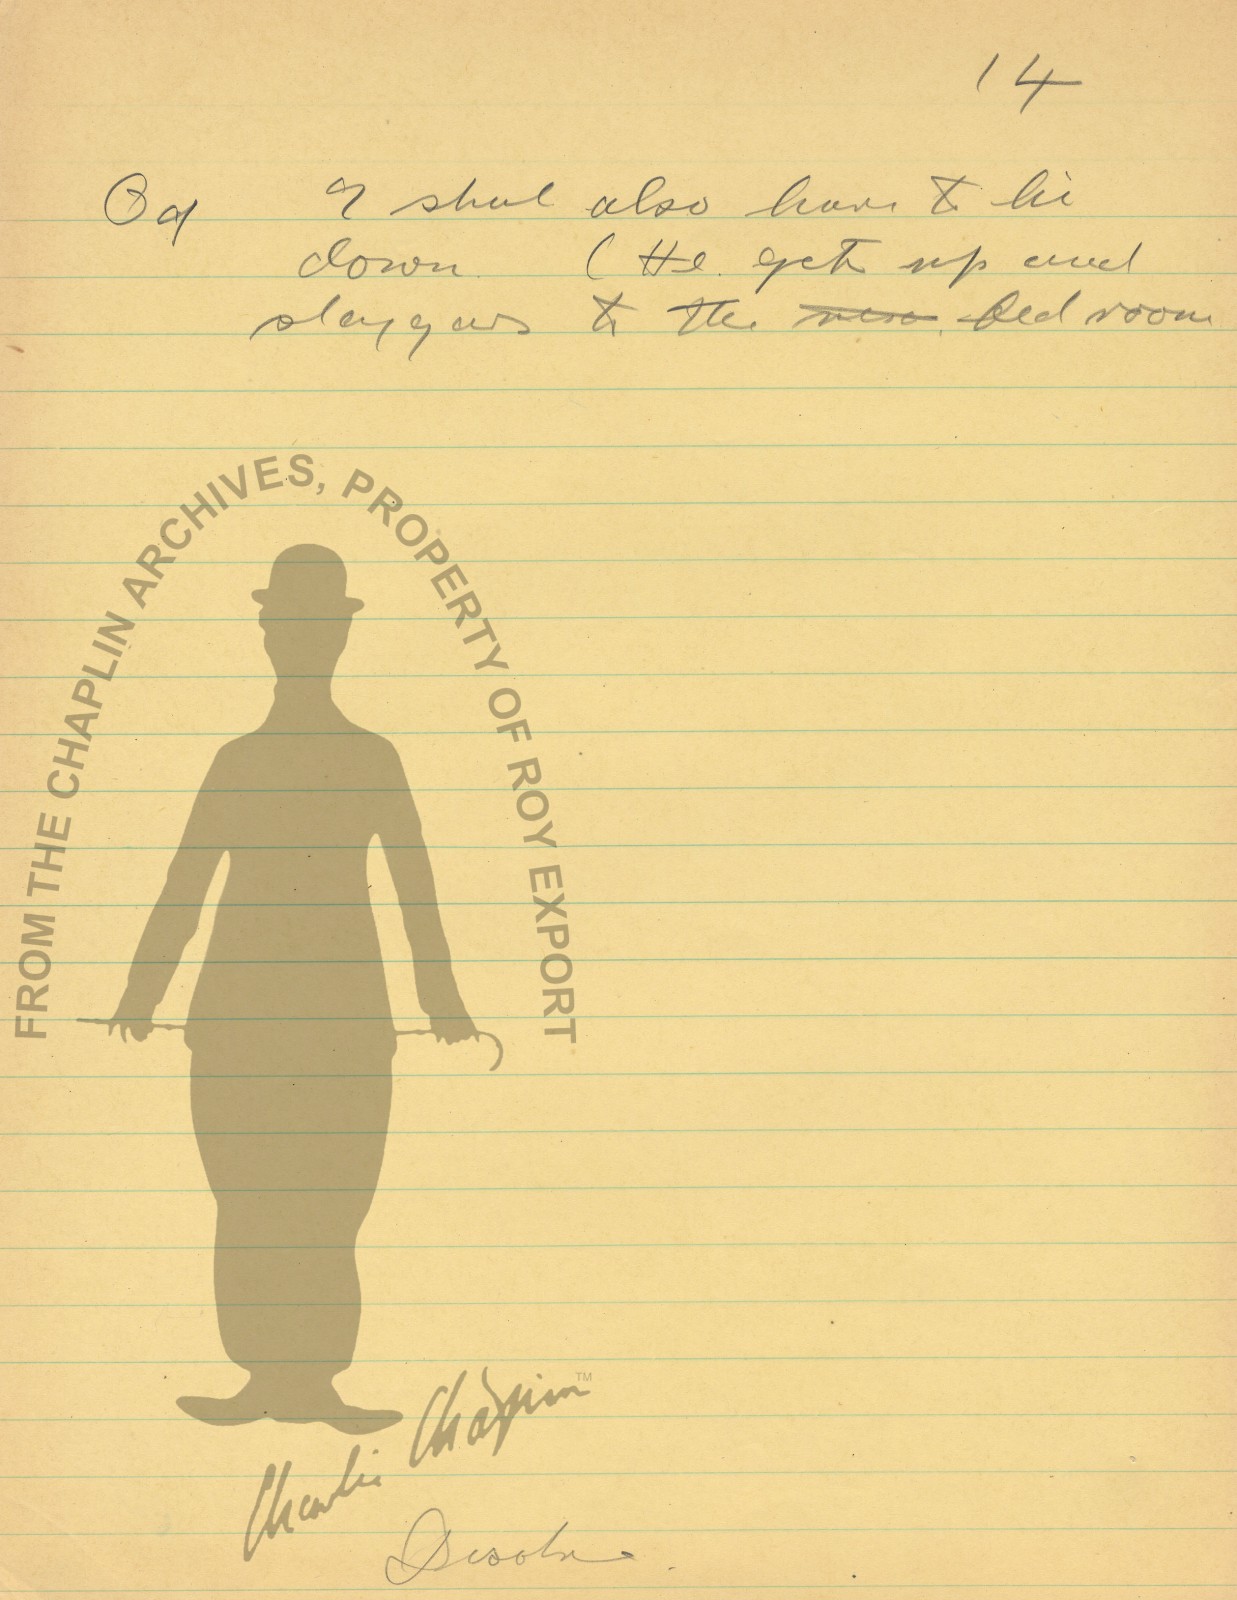 14
I shal also have to lie
down (He gets up and
staggers to the bedroom
FROM THE CHAPLIN ARCHIVES, PROPERTY OF ROY EXPORT
Charlie Chaplin™
Disolve